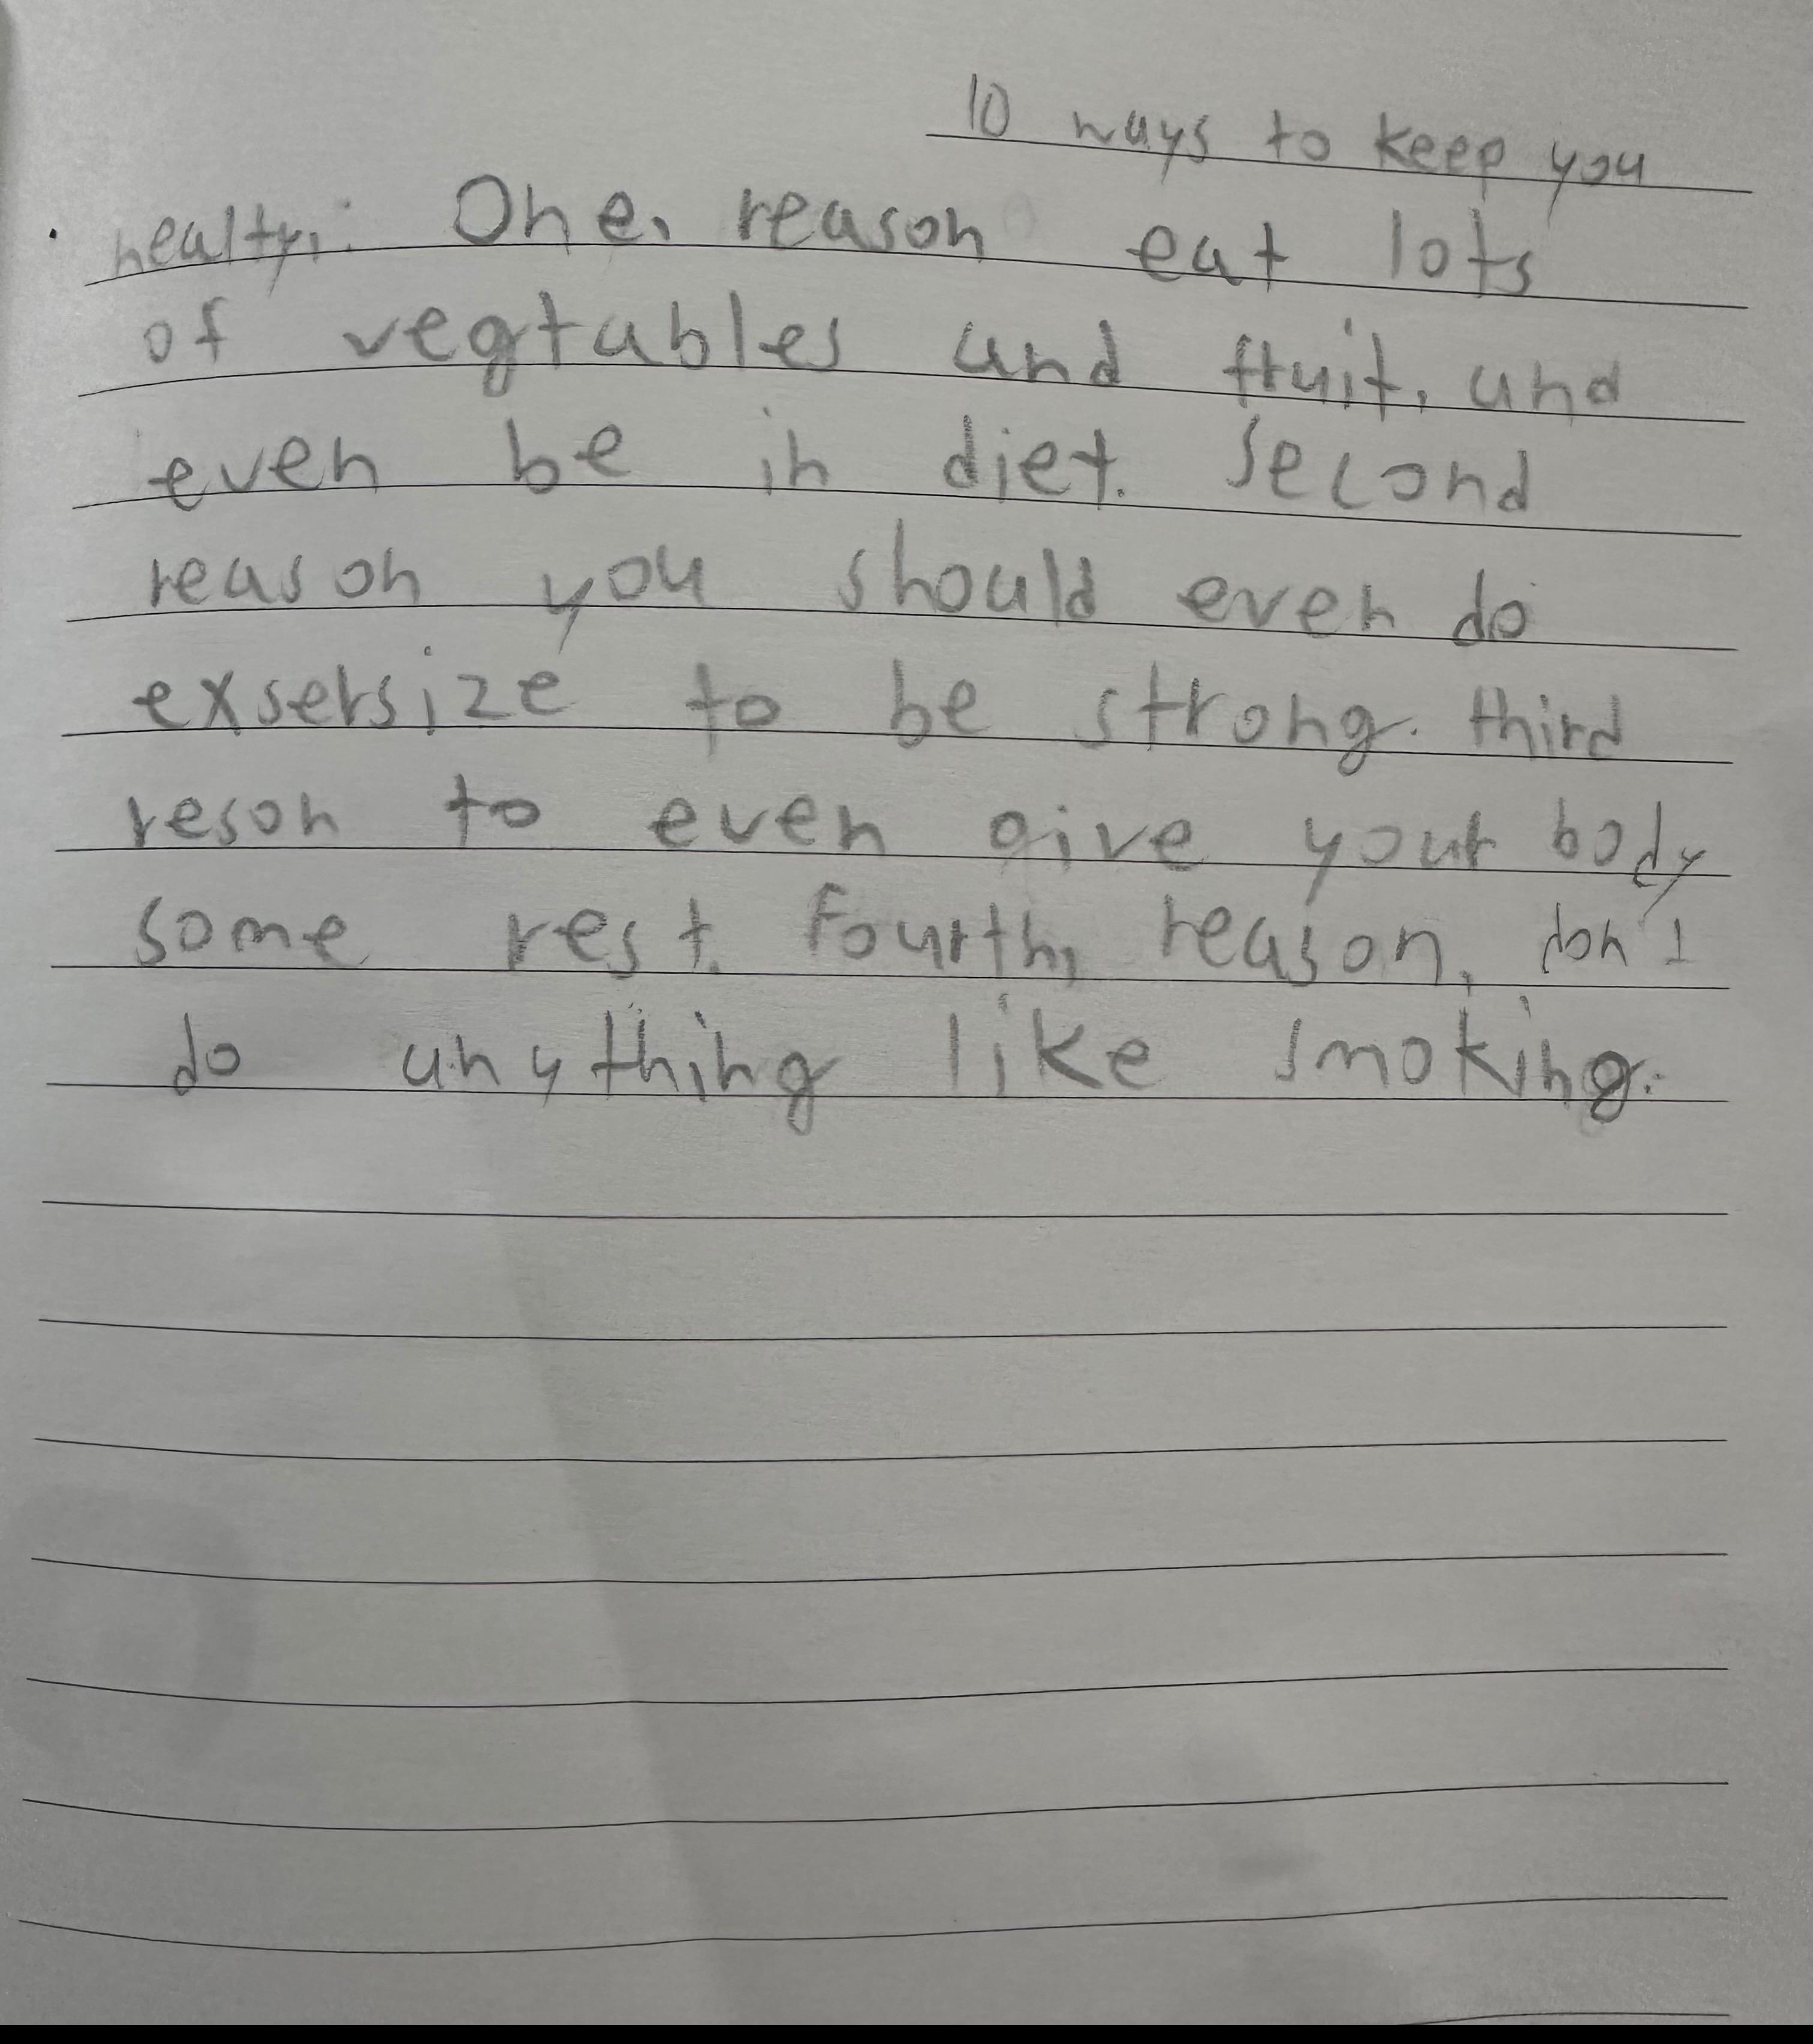 10 ways to keep you
healty: One, reason eat lots
of vegtables and fruit, and
even be in diet. Second
reason you should even do
exsersize to be strong. third
reson to even give your body
some rest. Fourth, reason, don't
do anything like smoking.